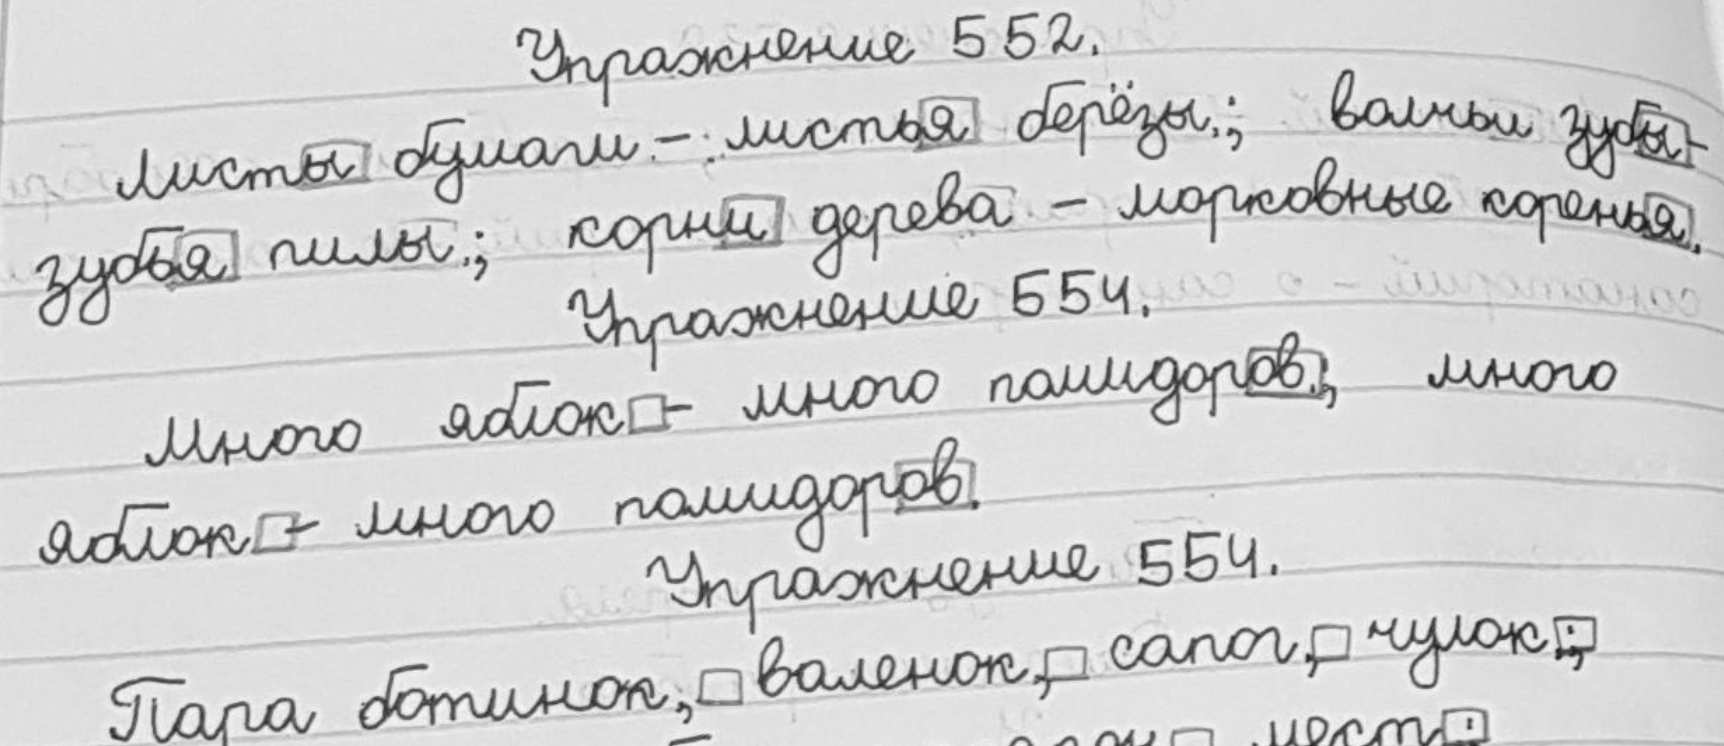 Упражнение 552.
Листы бумаги - листья берёзы.; волчьи зубы-
зубья пилы.; корни дерева - морковные коренья.
Упражнение 554.
Много яблок - много помидоров., много
яблок - много помидоров.
Упражнение 554.
Пара ботинок, валенок, сапог, чулок;
мест